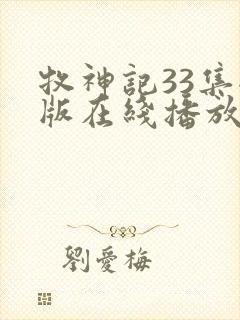 牧神記33集
版在綫播放
劉愛梅